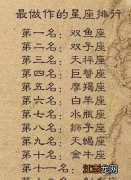 最做作的星座排行
第一名：双鱼座
第二名：双子座
第三名：天秤座
第四名：巨蟹座
第五名：摩羯座
第六名：白羊座
第七名：水瓶座
第八名：狮子座
第九名：天蝎座
第十名：金牛座
第十一名：